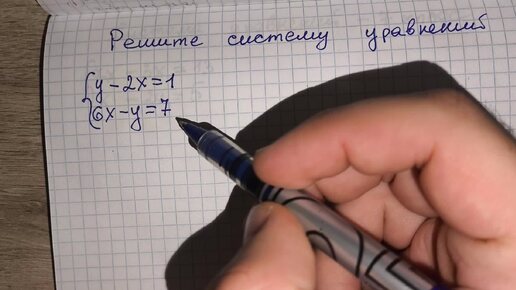 Решите систему уравнений
{y - 2x = 1
{6x - y = 7